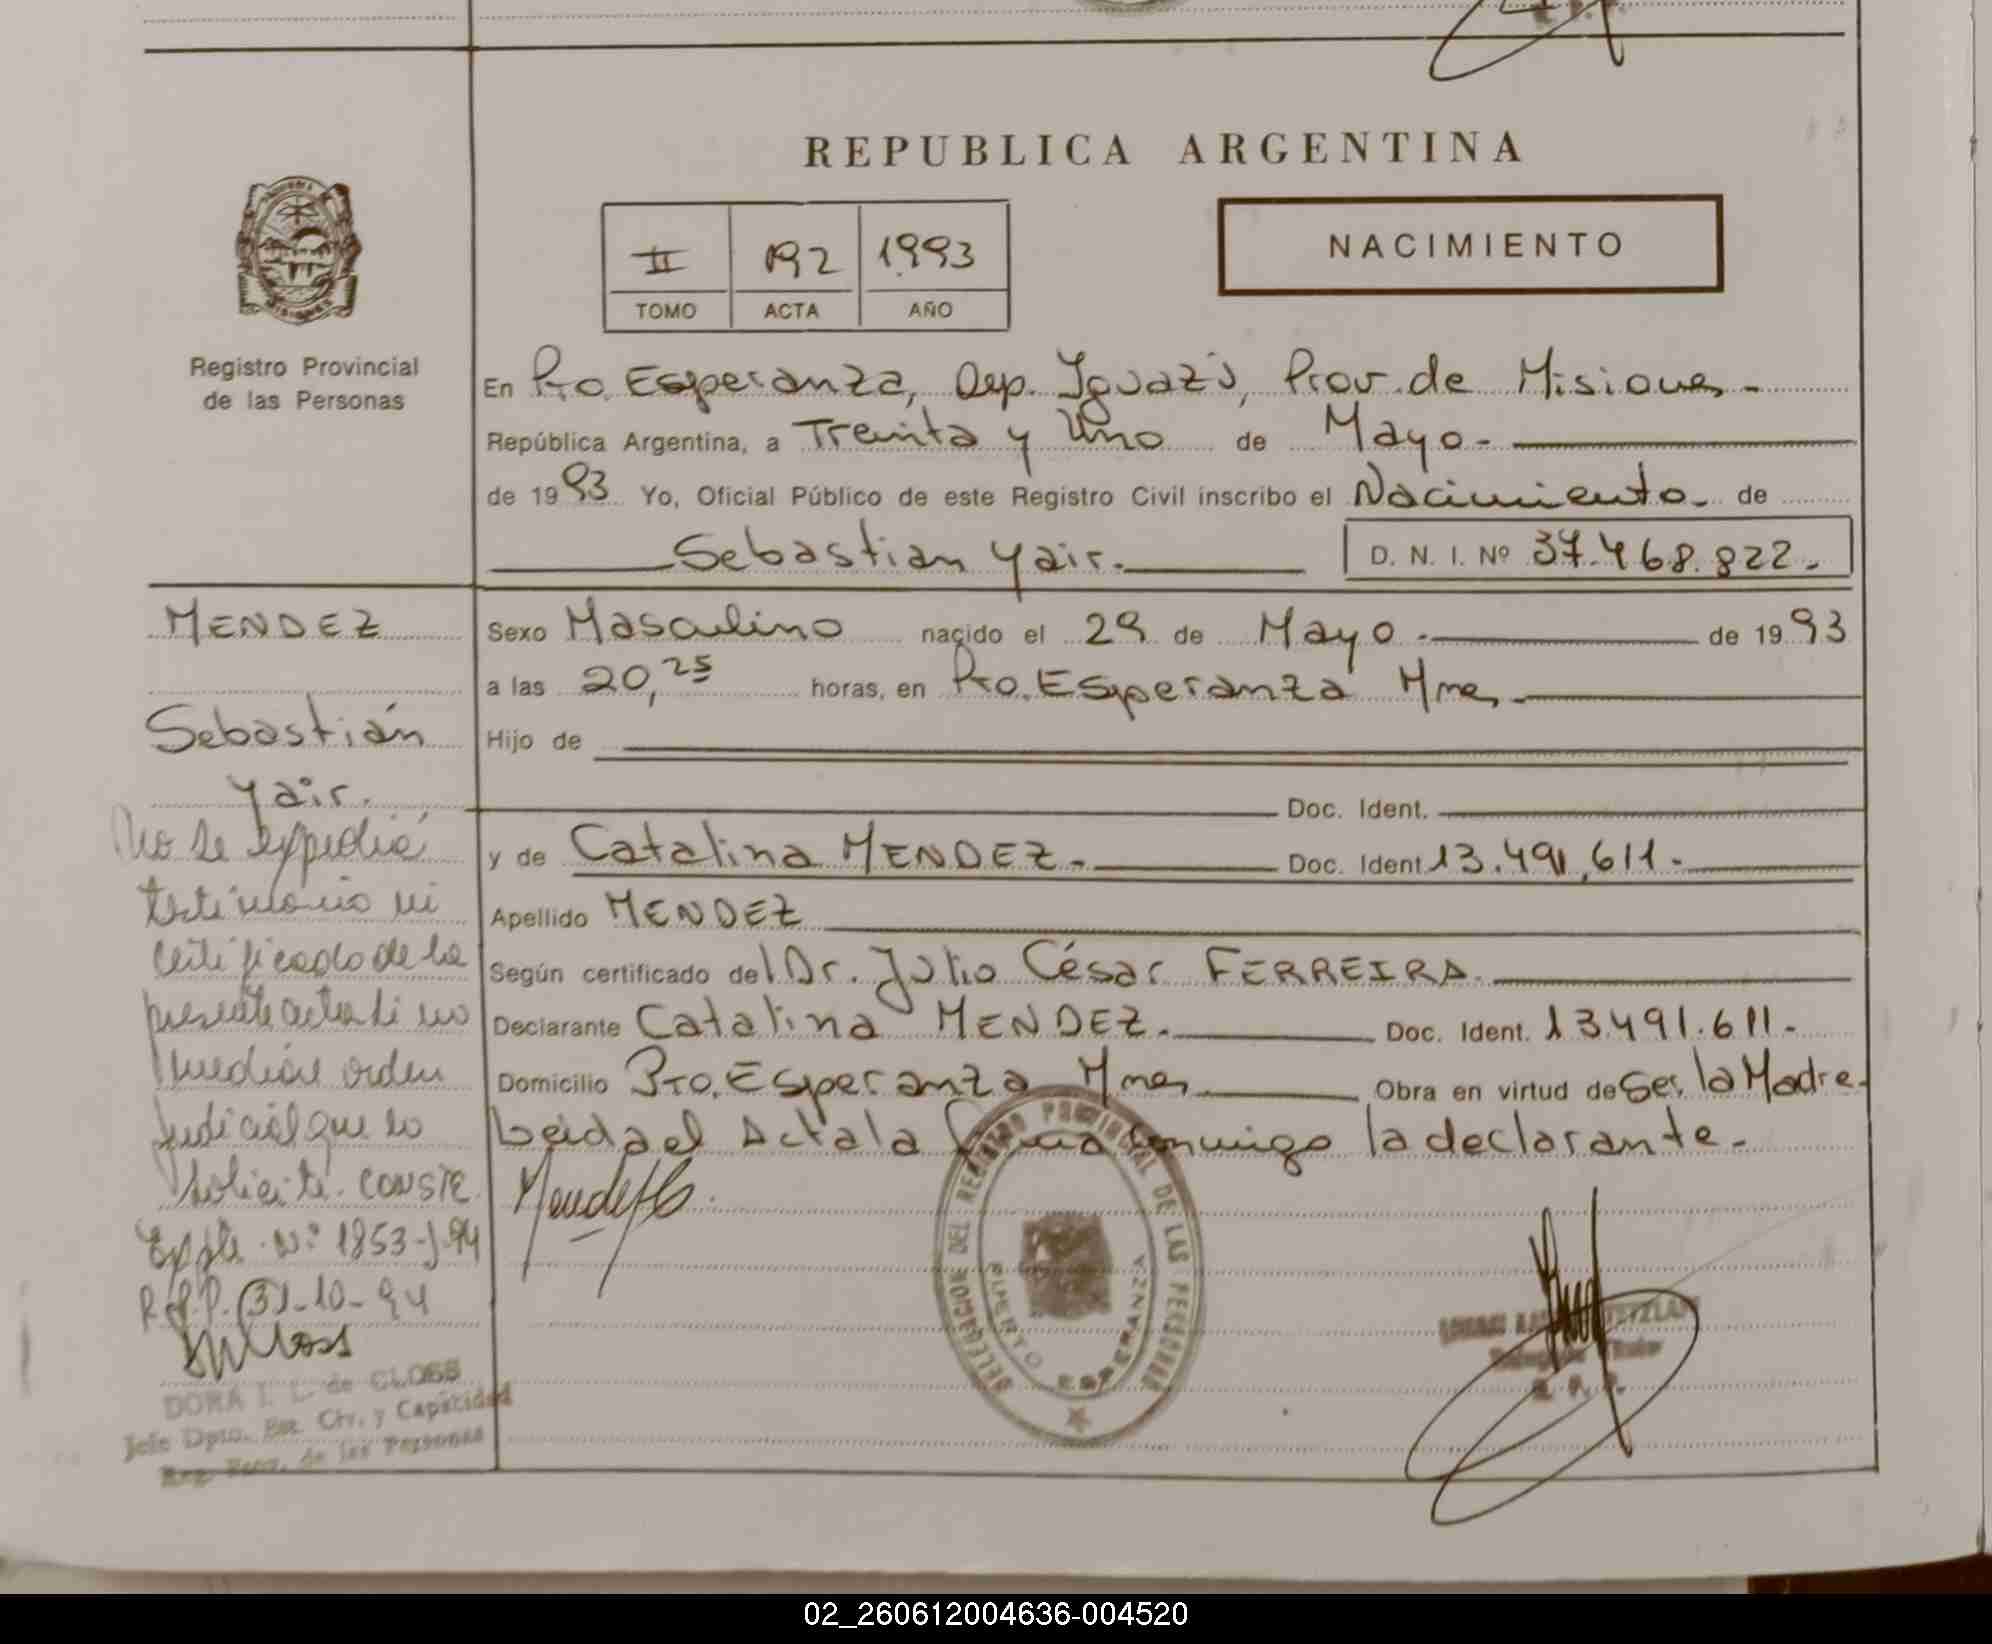 REPUBLICA ARGENTINA
II 192 1993
TOMO ACTA AÑO
NACIMIENTO
Registro Provincial
de las Personas
En Pto. Esperanza, Dep. Iguazú, Prov. de Misiones.-
República Argentina, a Treinta y Uno de Mayo.-
de 1993 Yo, Oficial Público de este Registro Civil inscribo el Nacimiento.- de
Sebastian Yair.-
D. N. I. Nº 37.468.822.-
MENDEZ
Sebastián
Yair.
No se expedirá
testimonio ni
certificado de la
presente acta si no
mediare orden
judicial que lo
solicite. CONSTE
Expte. Nº 1853-J-94
R.P.P. 31-10-94
DORA I. L. de CLOSS
Jefe Dpto. Est. Civ. y Capacidad
Reg. Prov. de las Personas
Sexo Masculino nacido el 29 de Mayo.- de 1993
a las 20,25 horas, en Pto. Esperanza Mnes.-
Hijo de
Doc. Ident.
y de Catalina MENDEZ.- Doc. Ident 13.491.611.-
Apellido MENDEZ
Según certificado del Dr. Julio César FERREIRA.
Declarante Catalina MENDEZ.- Doc. Ident. 13.491.611.-
Domicilio Pto. Esperanza Mnes Obra en virtud de Ser la Madre.-
Leida el Acta la firma conmigo la declarante.-
DELEGACION DEL REGISTRO PROVINCIAL DE LAS PERSONAS
PUERTO ESPERANZA
Titular
R. P. P.
02_260612004636-004520